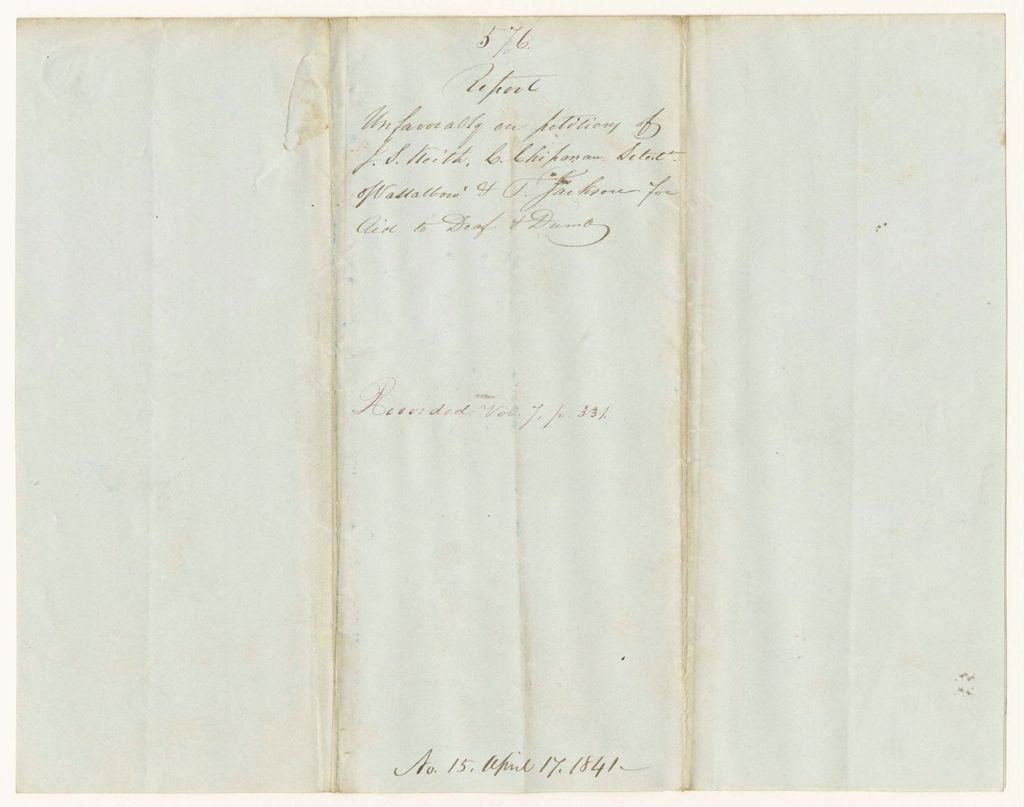 576.
Report
Unfavorably on petitions of
J. S. Keith, C. Chipman Select.
of Vassalboro' & T. Jackson for
Aid to Deaf & Dumb
Recorded Vol. 7, p. 331.
No. 15. April 17. 1841